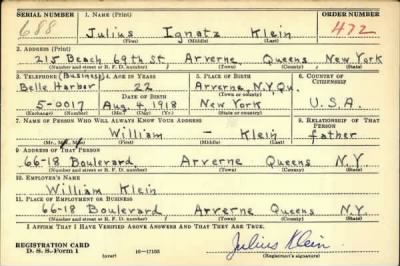 SERIAL NUMBER 1. NAME (Print) ORDER NUMBER
688 Julius Ignatz Klein 472
(First) (Middle) (Last)
2. ADDRESS (Print)
215 Beach 69th St, Arverne, Queens, New York
(Number and street or R. F. D. number) (Town) (County) (State)
3. TELEPHONE (Business) 4. AGE IN YEARS 5. PLACE OF BIRTH 6. COUNTRY OF CITIZENSHIP
Belle Harbor 22 Arverne, N.Y. Qu.
DATE OF BIRTH (Town or county)
5-0017 Aug. 4, 1918 New York U.S.A.
(Exchange) (Number) (Mo.) (Day) (Yr.) (State or country)
7. NAME OF PERSON WHO WILL ALWAYS KNOW YOUR ADDRESS 8. RELATIONSHIP OF THAT PERSON
William - Klein father
(Mr., (First) (Middle) (Last)
9. ADDRESS OF THAT PERSON
66-18 Boulevard, Arverne Queens N.Y.
(Number and street or R. F. D. number) (Town) (County) (State)
10. EMPLOYER'S NAME
William Klein
11. PLACE OF EMPLOYMENT OR BUSINESS
66-18 Boulevard, Arverne Queens N.Y.
(Number and street or R. F. D. number) (Town) (County) (State)
I AFFIRM THAT I HAVE VERIFIED ABOVE ANSWERS AND THAT THEY ARE TRUE.
REGISTRATION CARD
D. S. S. Form 1 (over) Julius Klein
(Registrant's signature)